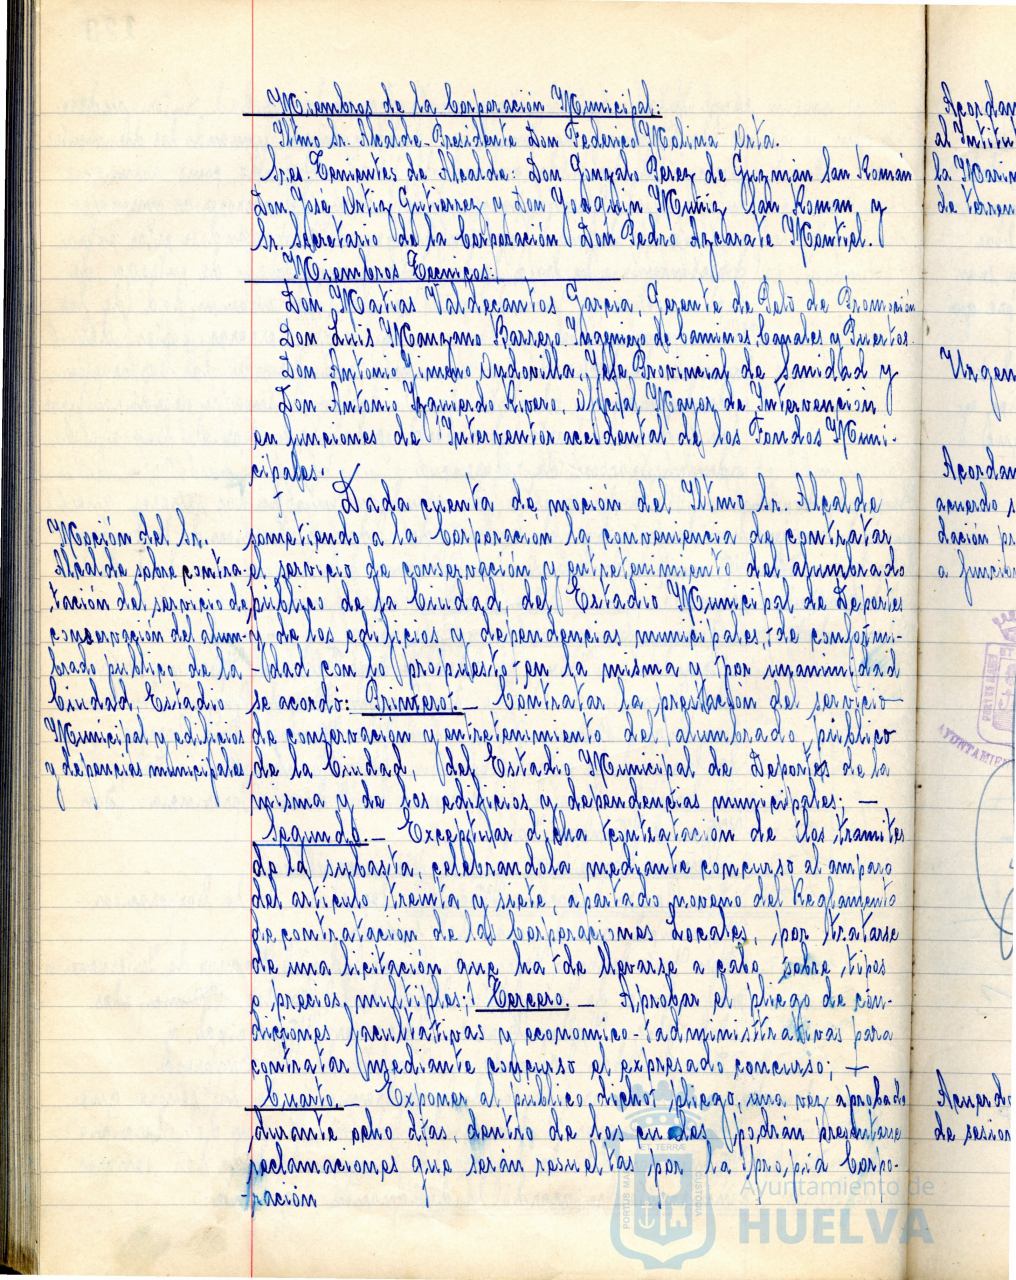 Miembros de la Corporación Municipal:
Iltmo Sr. Alcalde-Presidente Don Federico Molina Orta.
Sres. Tenientes de Alcalde: Don Gonzalo Perez de Guzmán San Román
Don Jose Ortiz Gutierrez y Don Joaquin Muñiz San Roman y
Sr. Secretario de la Corporación Don Pedro Azcarate Montiel.
Miembros Tecnicos:
Don Matias Valdecantos Garcia, Gerente de Polo de Promoción
Don Luis Manzano Barrero Ingeniero de Caminos, Canales y Puertos.
Don Antonio Jimeno Ondovilla, Jefe Provincial de Sanidad y
Don Antonio Izquierdo Rivero, Oficial Mayor de Intervención
en funciones de Interventor accidental de los Fondos Muni-
cipales.
Dada cuenta de moción del Iltmo Sr. Alcalde
sometiendo a la Corporación la conveniencia de contratar
el servicio de conservación y entretenimiento del alumbrado
publico de la Ciudad, del Estadio Municipal de Deportes
y de los edificios y dependencias municipales, de conformi-
dad con lo propuesto en la misma y por unanimidad
se acordó: Primero.- Contratar la prestación del servicio
de conservación y entretenimiento del alumbrado público
de la Ciudad, del Estadio Municipal de Deportes de la
misma y de los edificios y dependencias municipales; —
Segundo.- Exceptuar dicha contratación de los tramites
de la subasta, celebrandola mediante concurso al amparo
del articulo treinta y siete, apartado noveno del Reglamento
de contratación de las Corporaciones Locales, por tratarse
de una licitación que ha de llevarse a cabo sobre tipos
o precios multiples; Tercero.- Aprobar el pliego de con-
diciones facultativas y economico-administrativas para
contratar mediante concurso el expresado concurso; —
Cuarto.- Exponer al público dicho pliego, una vez aprobado
durante ocho días, dentro de los cuales podrán presentarse
reclamaciones que serán resueltas por la propia Corpo-
ración
Moción del Sr.
Alcalde sobre contra-
tación del servicio de
conservación del alum-
brado publico de la
Ciudad, Estadio
Municipal y edificios
y depencias municipales
Acordan
al Institu
la Marin
de terren
Urgen
Acordan
acuerdo s
dación pr
a funcion
Acuerdo
de sesion
AYUNTAMIEN
PORTUS MA
ET TERRÆ
CUSTODIA
Ayuntamiento de
HUELVA